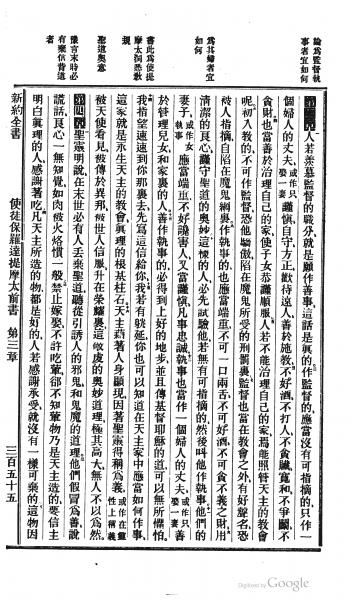 論為監督執
事者宜如何
為其婦者宜
如何
書此為使提
摩太洞悉教
規
聖道奧意
豫言末時必
有棄信背道
者
第三章 人若羨慕監督的職分、就是願作善事、這話是眞的、作監督的、應當沒有可指摘的、只作一
個婦人的丈夫、或作只娶一妻 謹愼自守、方正、歡待遠人、善於施教、不好酒、不打人、不貪贓、寬和、不爭鬭、不
貪財、也當善於治理自己的家、使子女恭謹順服、人若不能治理自己的家、焉能照管天主的教會
呢、初入教的、不可作監督、恐他驕傲、陷在魔鬼所受的刑罰裏、監督也當在教會之外、有好聲名、恐
被人指摘、自陷在魔鬼網裏、作執事的、也應當端重、不可一口兩舌、不可好酒、不可貪不義之財、用
清潔的良心、謹守聖道的奧妙、這樣的人、必先試驗他、若無有可指摘的、然後叫他作執事、他們的
妻子、或作女執事 應當端重、不好讒害人、又當謹愼、凡事忠誠、執事也當作一個婦人的丈夫、或作只娶一妻 善
於管理兒女和家裏的人、善作執事的、必得到上好的地步、並且傳基督耶穌的道、可以無所懼怕、
我指望速速到你那裏去、先寫這信給你、我若有躭延、你也可以知道在天主家中應當如何作事、
這家就是永生天主的教會、眞理的根基柱石、天主藉著人身顯現、因著聖靈得稱爲義、或作在靈性上稱義
被天使看見、被傳於異邦、被世人信服、升在榮耀裏、這敬虔的奧妙道理、極其高大、無人不以爲然、
第四章 聖靈明說、在末世必有人丟棄聖道、聽從引誘人的邪鬼、和鬼魔的道理、他們假冒爲善、說
謊話、良心一無知覺、如肉被火烙慣一般、禁止嫁娶、不許吃葷、卻不知葷物乃是天主造的、要信主
明白眞理的人、感謝著吃、凡天主所造的物、都是好的、人若感謝承受、就沒有一樣可棄的、這物因
新約全書 使徒保羅達提摩太前書 第三章 三百五十五
Digitized by Google